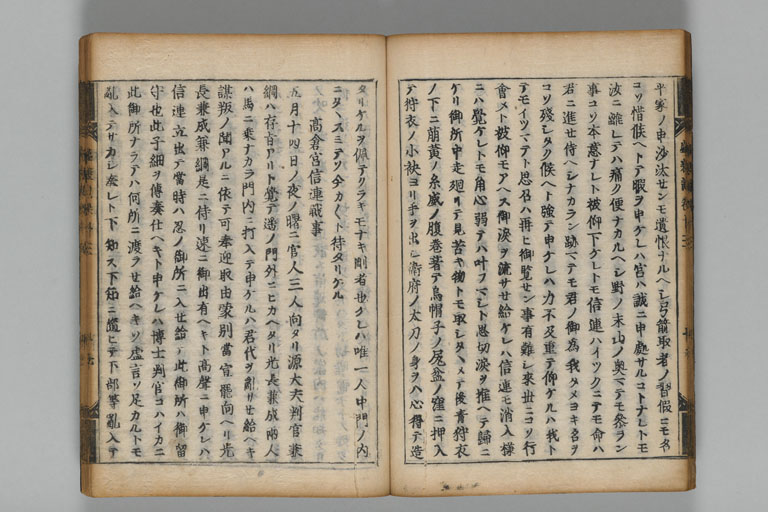 平家ノ申沙汰せンモ遺恨ナルヘシ弓箭取者ノ習假ニモ名
コソ惜候ヘトテ暇ヲ申ケレハ宮ハ誠ニ申處サルコトナレトモ
汝ニ離レテハ痛ク便ナカルヘシ野ノ末山ノ奥マテモ参ラン
事コソ本意ナレト被仰下ケレトモ信連ハイツクニテモ命ハ
君ニ進せ侍ヘシナカラン跡マテモ君ノ御為我タメヨキ名ヲ
コソ残シタク候ヘト強テ申ケレハ力不及重テ仰ケルハ我ト
テモイツマテト思召ハ再ヒ御覧せン事有難シ来世ニコソ行
會メト被仰モアヘス御涙ヲ流サせ給ケレハ信連モ消入様
ニハ覺ケレトモ用心弱テハ叶フマシト思切涙ヲ推ヘテ歸ニ
ケリ御所中走廻リテ見苦キ物トモ取シタヽメテ後青狩衣
ノ下ニ萠黄ノ糸威ノ腹巻著テ烏帽子ノ尻盆ノ窪ニ押入
テ狩衣ノ小袂ヨリ手ヲ出シ衛府ノ太刀ノ身ヲハ心得テ造
タリケルヲ佩テクラキモナキ剛者也ケレハ唯一人中門ノ内
ニタヽスミテソ今カ〱ト待タリケル
高倉宮信連戦事
五月十四日ノ夜ノ曙ニ官人三人向タリ源大夫判官兼
綱ハ存旨アリト覺テ遥ノ門外ニヒカヘタリ光長兼成両人
ハ馬ニ乗ナカラ門内ニ打入テ申ケルハ君代ヲ亂サせ給ヘキ
謀叛ノ聞アルニ依テ可奉迎取由蒙別當宣罷向ヘリ光
長兼成兼綱是ニ侍リ速ニ御出有ヘキト高聲ニ申ケレハ
信連立出テ當時ハ忍ノ御所ニ入せ給テ此御所ハ御留
守也此子細ヲ傳奏仕ヘキト申ケレハ博士判官コハイカニ
此御所ナラテハ何所ニ渡ラせ給ヘキソ虚言ソ足カルトモ
亂入テサカシ奏レト下知ス下知ニ随ヒテ下部等亂入テ